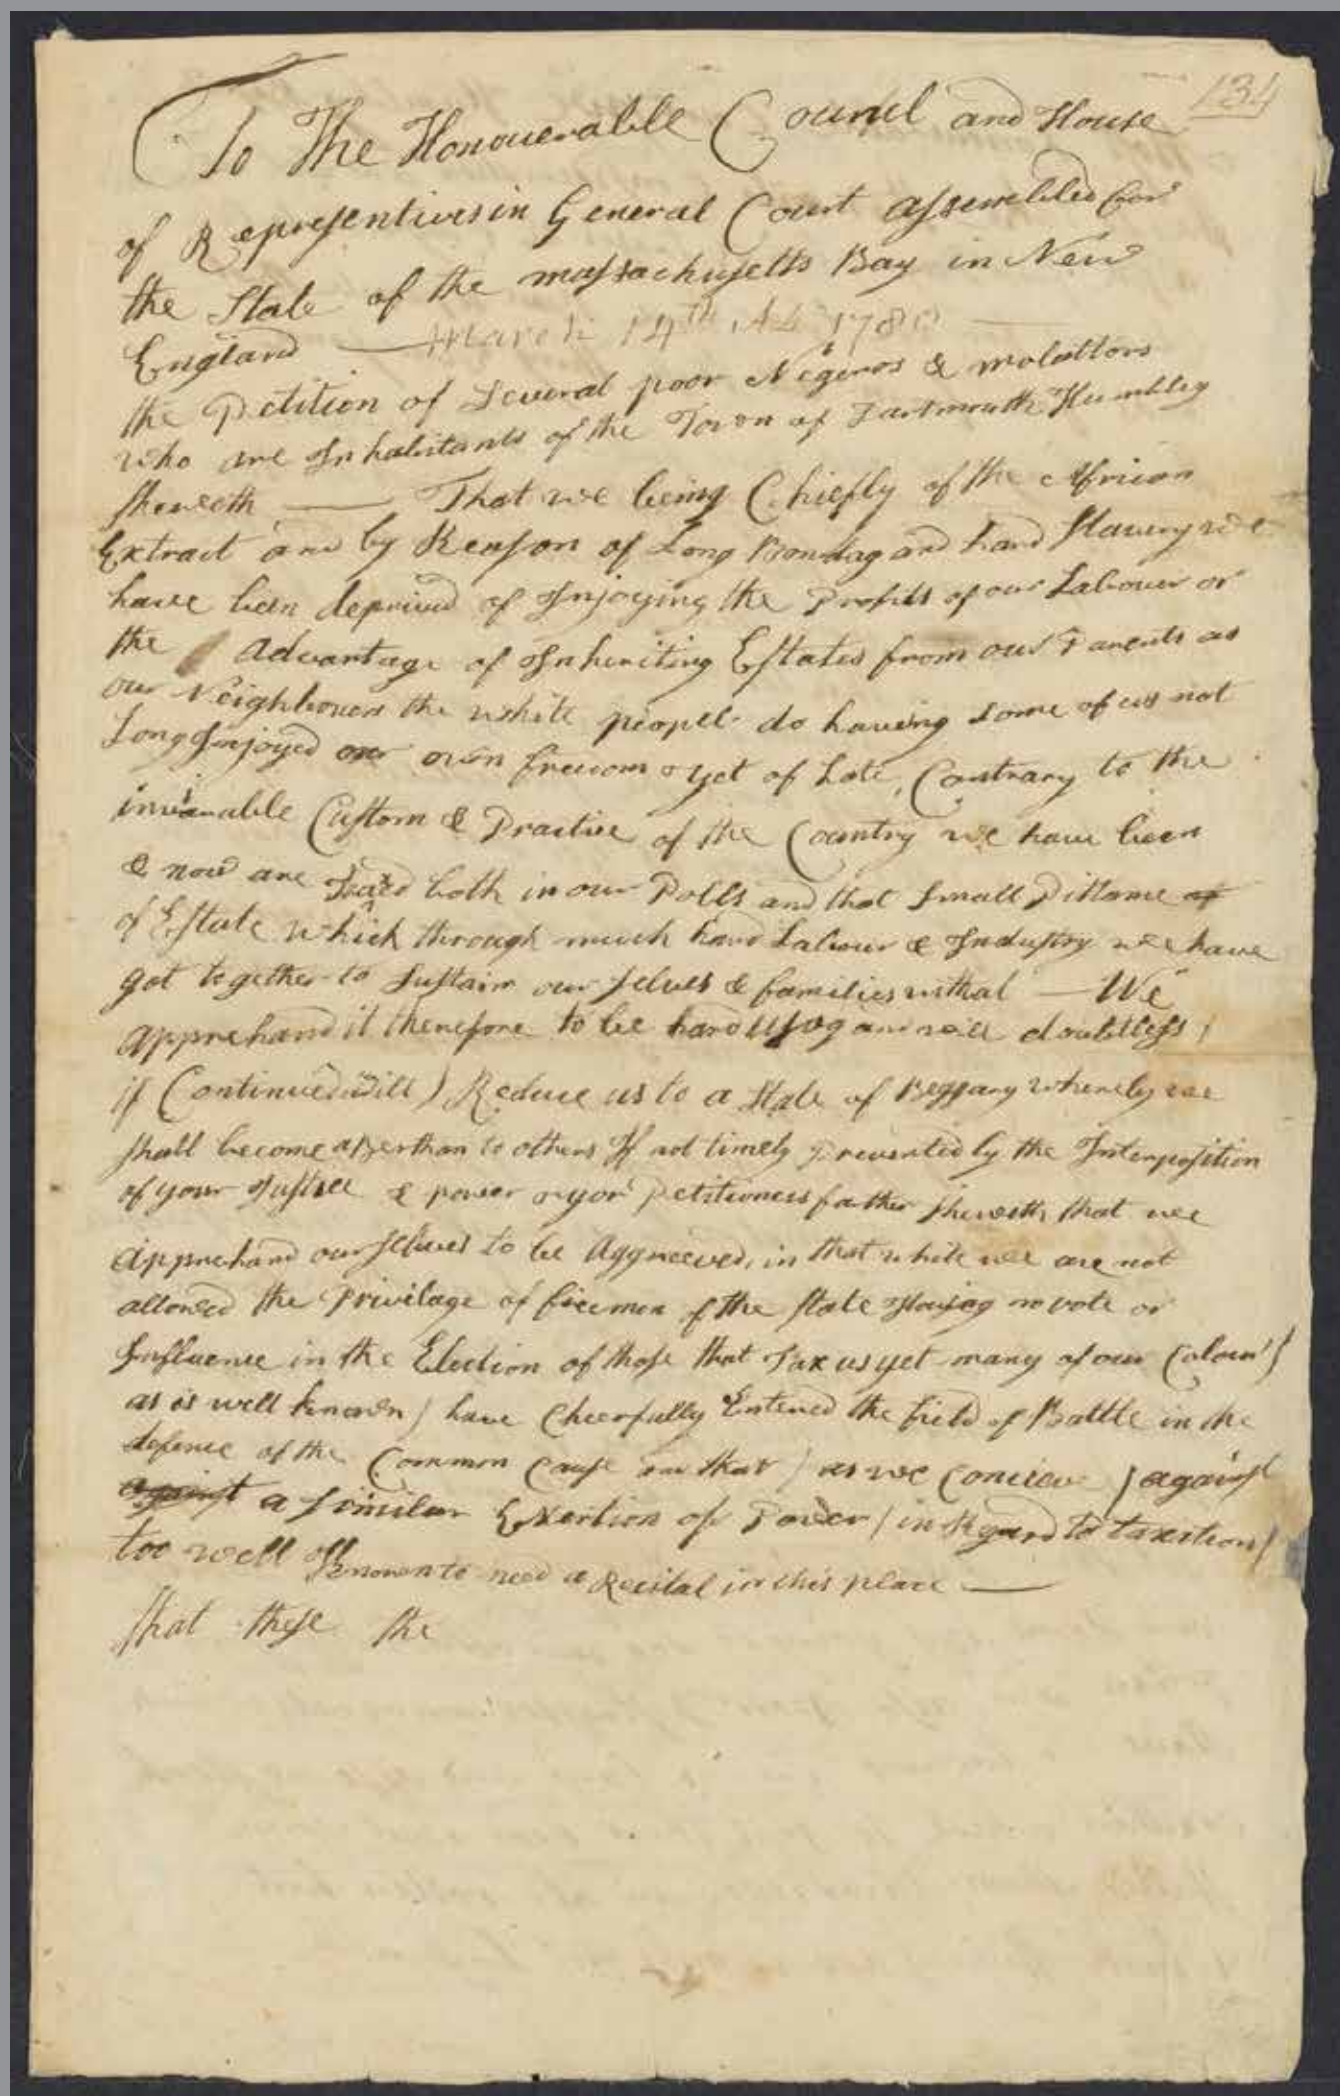 134
To The Honouerable Councel and House
of Representives in General Court assembled for
the State of the massachusetts Bay in New
England — March 14th AD 1780 —
the Petition of Several poor Negeros & molattors
who are Inhabitants of the Town of Dartmouth Humbley
sheweth — That we being Chiefly of the African
Extract and by Reason of Long Bondag and hard Slavery we
have been deprived of Injoying the Profits of our Labouer or
the Advantage of Inheriting Estates from our Parents as
our Neighbouers the white peopel do having some of us not
Long Injoyed our own freedom & yet of late, Contrary to the
invariable Custom & Practice of the Country we have been
& now are Taxed both in our Polls and that small Pittance of
of Estate which through much hard Labour & Industry we have
got together to Sustain our selves & families withal — We
apprehand it therefore to be hard usag and will doubtless
if Continued will ) Reduce us to a State of Beggary whereby we
shall become a Berthan to others If not timely prevented by the Interposition
of your Justice & power & yor Petitioners farther sheweth that we
apprehand ourselves to be Aggreeved, in that while we are not
allowed the Privilage of freemen of the State Having no vote or
Influence in the Election of those that Tax us yet many of our Colour )
as is well known ) have Cheerfully Entered the field of Battle in the
defence of the Common Cause and that ) as we Conceive ) against
against a similar Exertion of Power ( in Regard to taxation )
too well Known to need a Recital in this place —
that these the